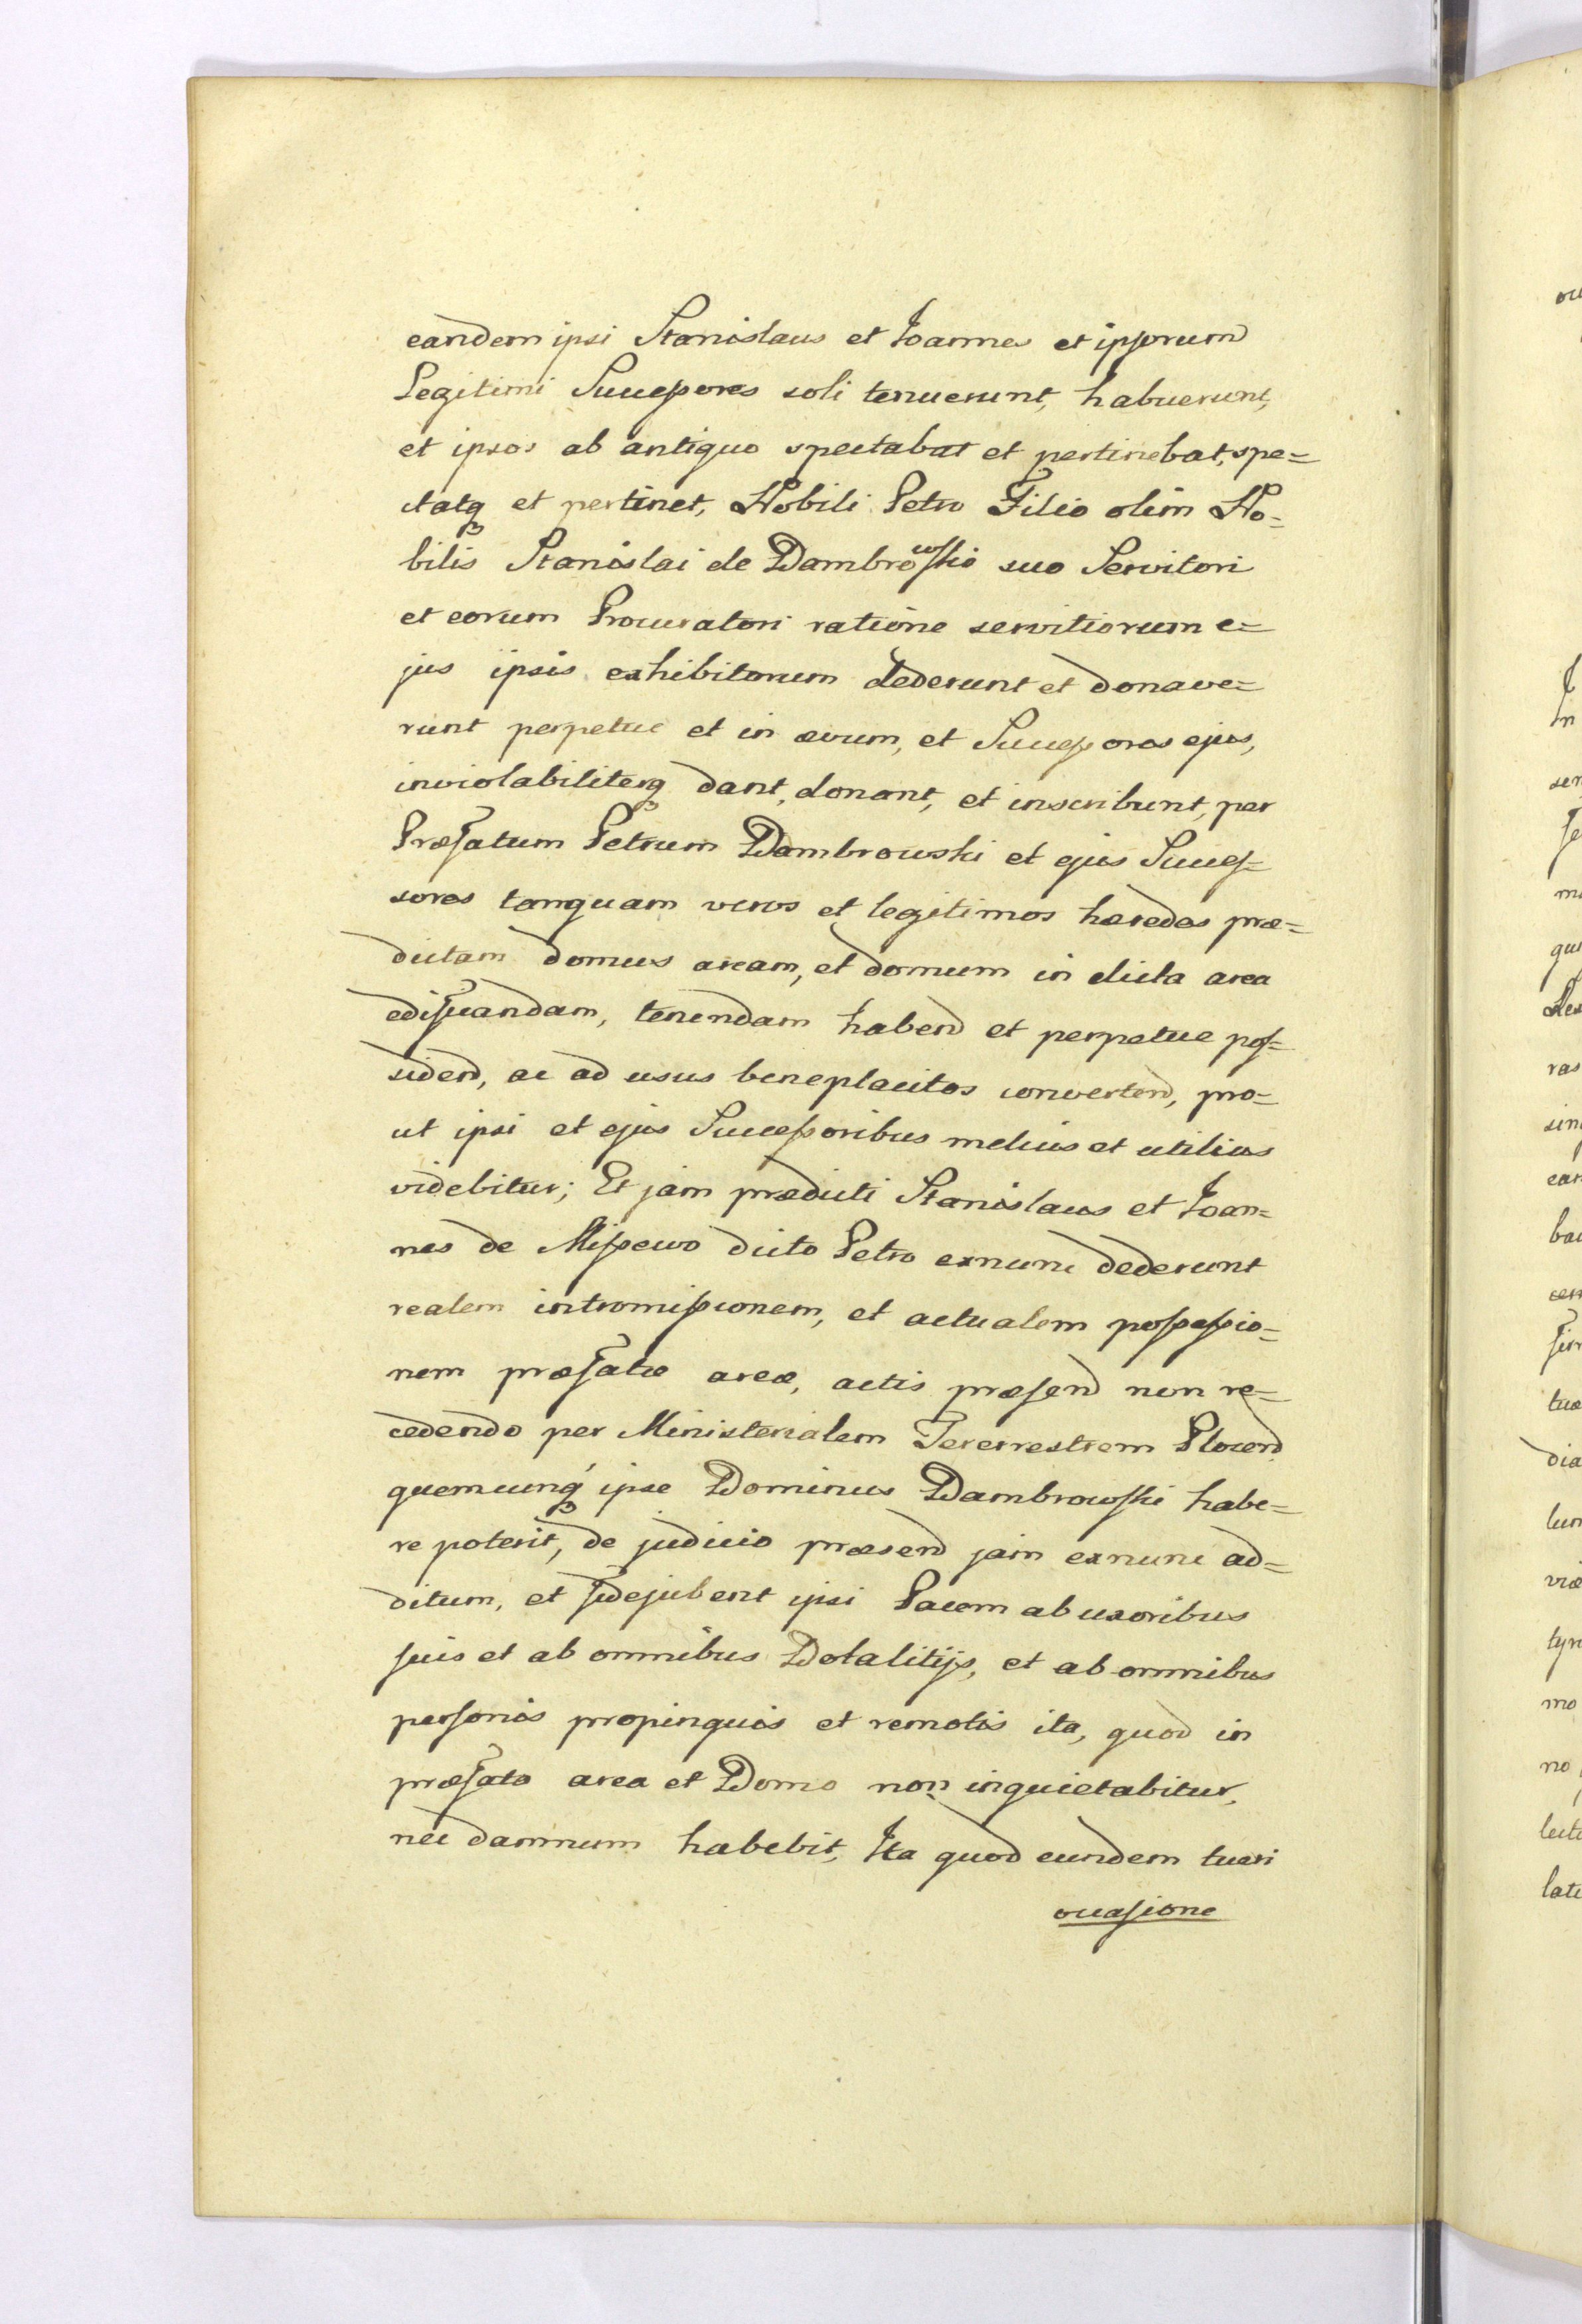 eandem ipsi Stanislaus et Joannes et ipsorum
Legitimi Successores soli tenuerunt, habuerunt,
et ipsos ab antiquo spectabat et pertinebat, spe=
ctatq et pertinet, Nobili Petro Filio olim No=
bilis Stanislai de Dambrowskio suo Servitori
et eorum Procuratori ratione servitiorum e=
jus ipsis exhibitorum dederunt et donave=
runt perpetue et in ævum, et Successores ejus,
inviolabiliterq dant, donant, et inscribunt, per
Præfatum Petrum Dambrowski et ejus Succes=
sores tanquam veros et legitimos hæredes præ=
dictam domus aream, et domum in dicta area
edificandam, tenendam habend et perpetue pos=
sidend, ac ad usus beneplacitos convertend, pro=
ut ipsi et ejus Successoribus melius et utilius
videbitur; Et jam prædicti Stanislaus et Joan=
nes de Missewo dicto Petro exnunc dederunt
realem intromissionem, et actualem possessio=
nem præfatæ areæ, actis præsend non re=
cedendo per Ministerialem Tererrestrem Plocend
quemcunq ipse Dominus Dambrowski habe=
re poterit, de judicio præsend jam exnunc ad=
ditum, et fidejubent ipsi Pacem ab uxoribus
suis et ab omnibus Dotalitijs, et ab omnibus
personis propinquis et remotis ita, quod in
præfata area et Domo non inquietabitur,
nec damnum habebit, Ita quod eundem tueri
occasione
ou
J
In
ser
fe
me
qui
ras
sin
ear
bac
tuæ
dia
lun
viæ
tyn
mo
no
lecti
late